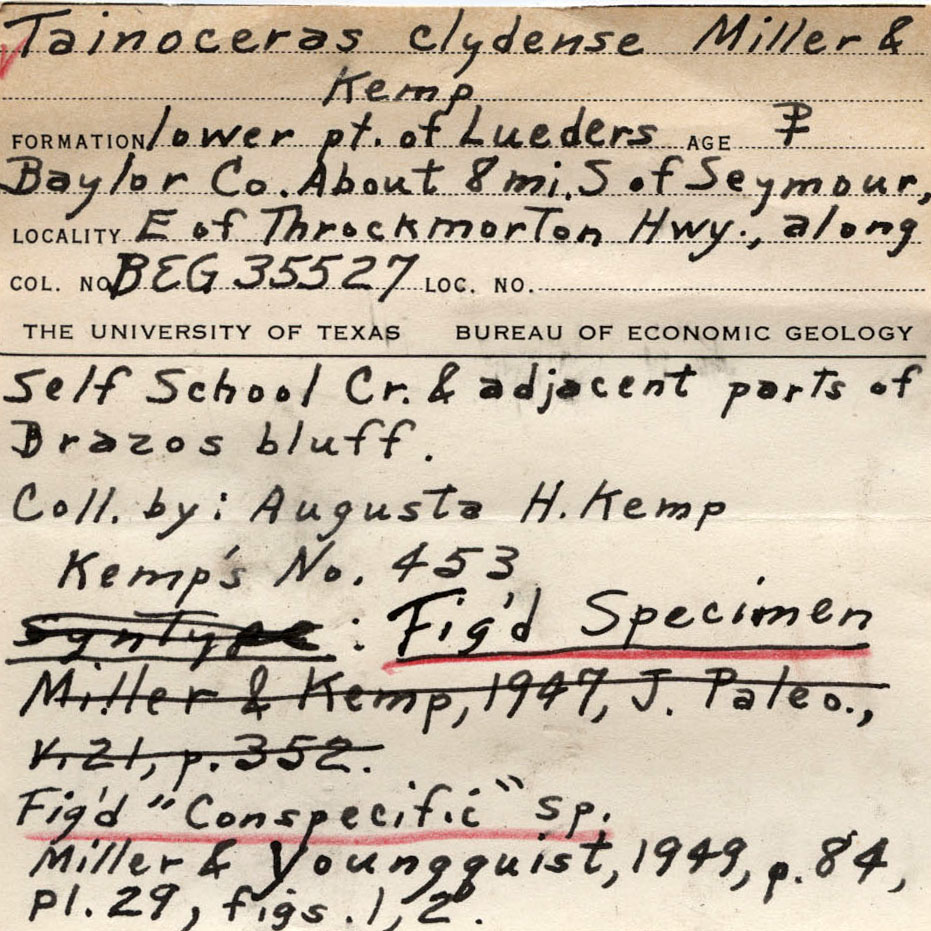 Tainoceras clydense Miller &
Kemp
FORMATION lower pt. of Lueders AGE P
Baylor Co. About 8 mi. S of Seymour,
LOCALITY E of Throckmorton Hwy., along
COL. NO. BEG 35527 LOC. NO.
THE UNIVERSITY OF TEXAS BUREAU OF ECONOMIC GEOLOGY
Self School Cr. & adjacent parts of
Brazos bluff.
Coll. by: Augusta H. Kemp
Kemp's No. 453
Syntype : Fig'd Specimen
Miller & Kemp, 1947, J. Paleo.,
v. 21, p. 352.
Fig'd "Conspecific" sp.
Miller & Youngquist, 1949, p. 84,
pl. 29, figs. 1, 2.